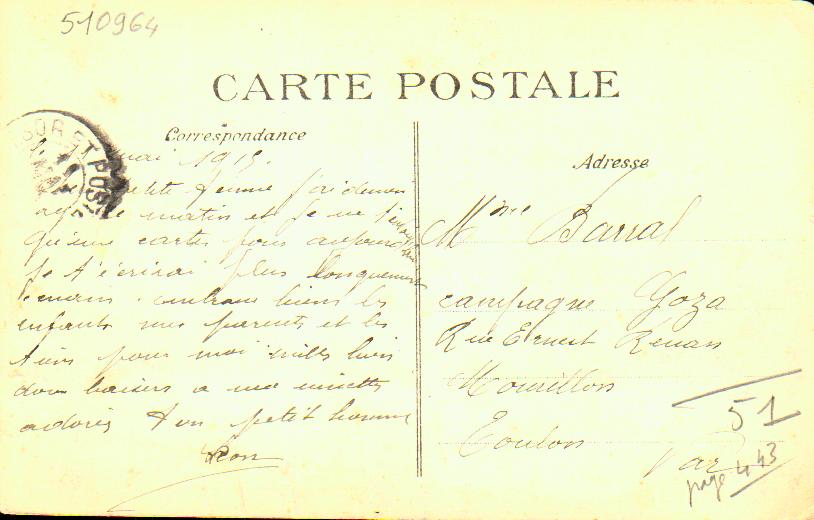 510964
CARTE POSTALE
Correspondance
mai 1915.
petite femme
matin et je ne t'envoye
qu'une carte pour aujourd'hui
Je t'écrirai plus longuement
demain. embrasse biens les
enfants mes parents et les
tiens pour moi milles biens
doux baisers a ma minette
adorée ton petit homme
Léon
TRESOR ET POSTES
Adresse
Mme Barral
campagne Goza
Rue Ernest Renan
Mourillon
Toulon
Var
51
page 443